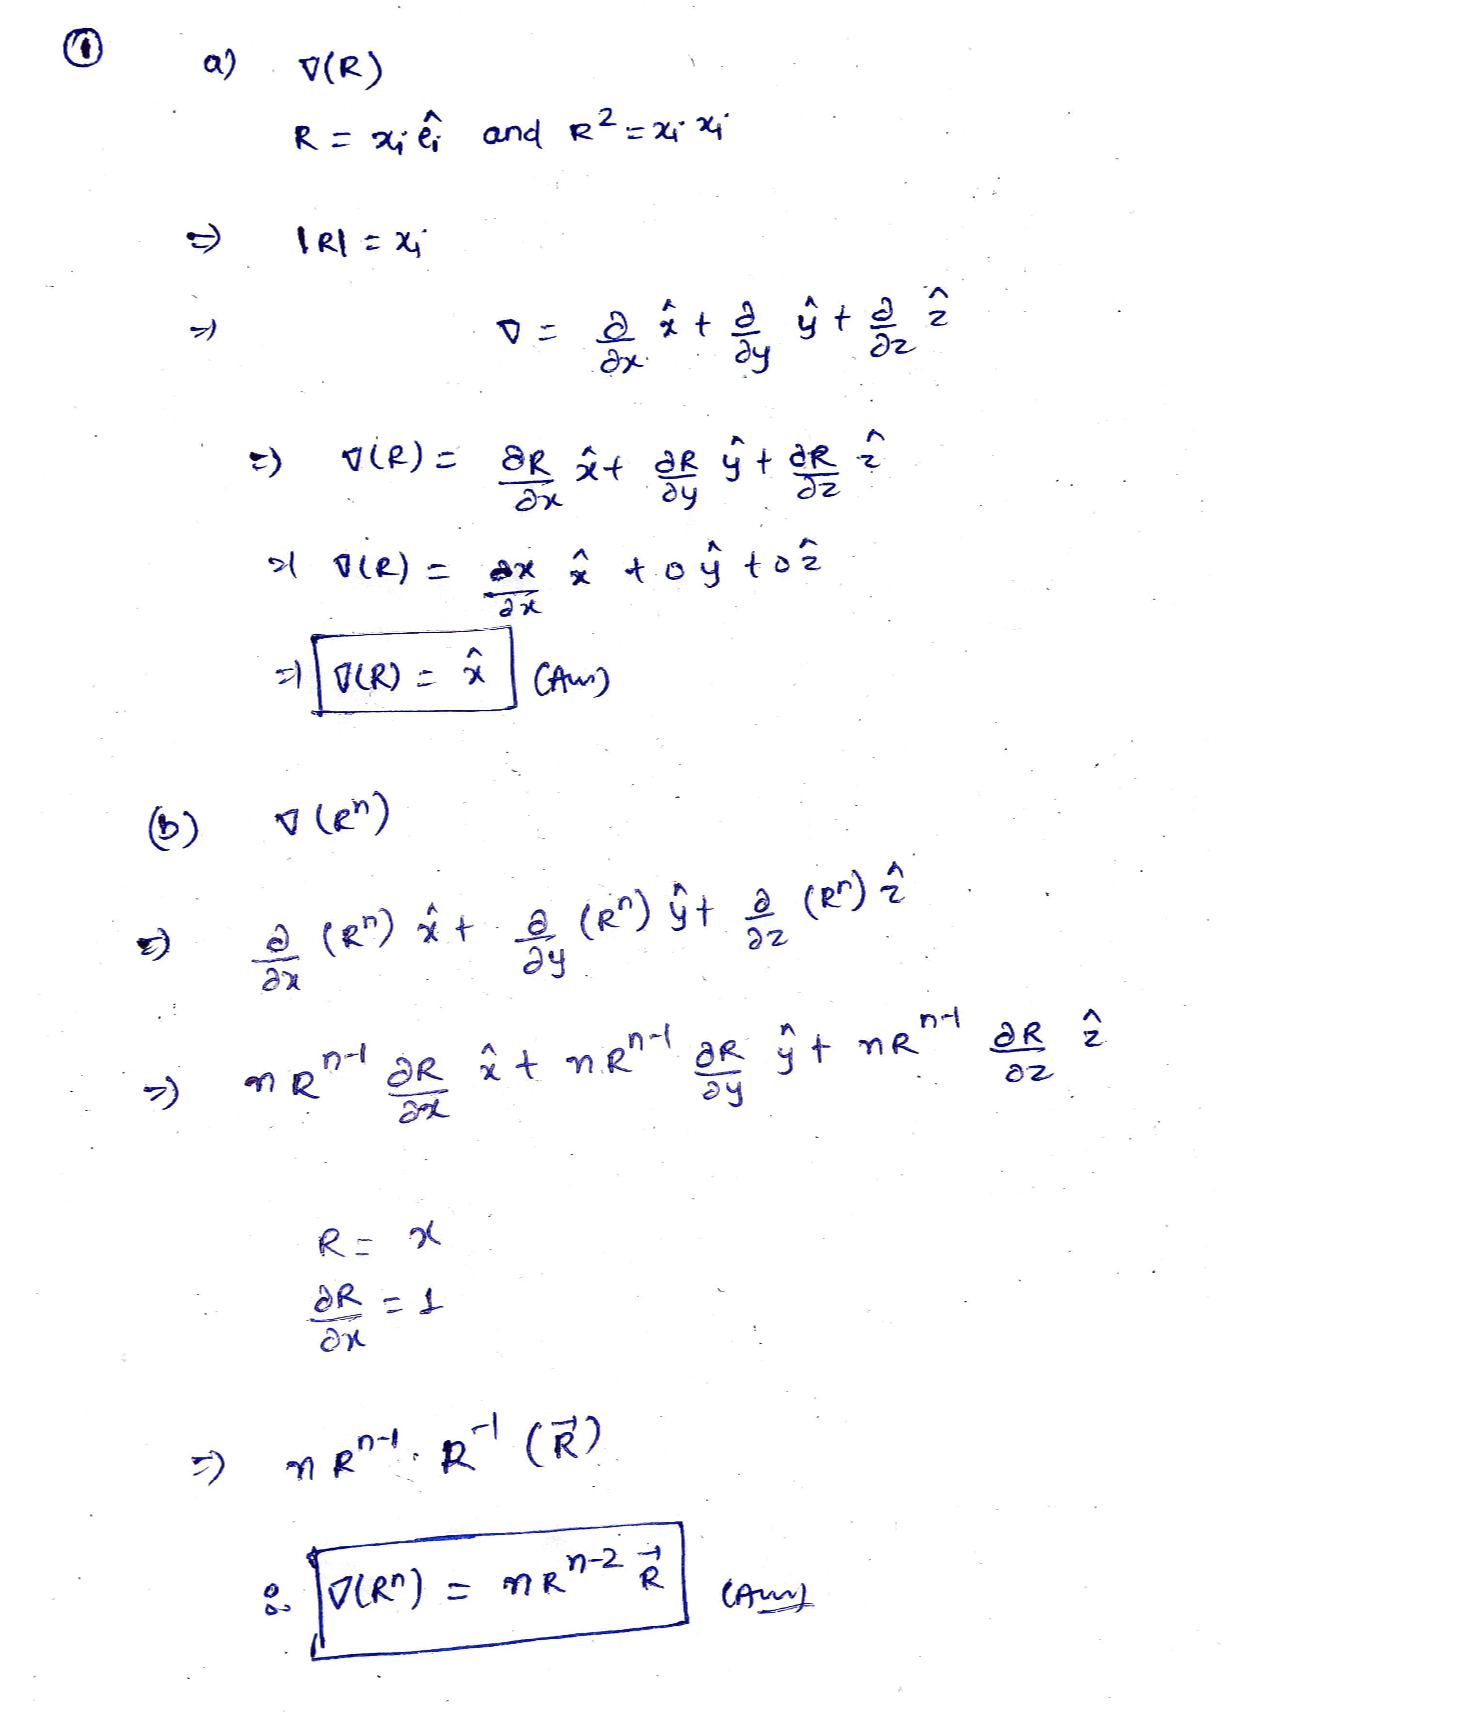 ① a) ∇(R)
R = xᵢ êᵢ and R² = xᵢ xᵢ
⇒ |R| = xᵢ
⇒ ∇ = ∂/∂x x̂ + ∂/∂y ŷ + ∂/∂z ẑ
⇒ ∇(R) = ∂R/∂x x̂ + ∂R/∂y ŷ + ∂R/∂z ẑ
⇒ ∇(R) = ∂x/∂x x̂ + 0 ŷ + 0 ẑ
⇒ ∇(R) = x̂ (Ans)
(b) ∇(Rⁿ)
⇒ ∂/∂x (Rⁿ) x̂ + ∂/∂y (Rⁿ) ŷ + ∂/∂z (Rⁿ) ẑ
⇒ n Rⁿ⁻¹ ∂R/∂x x̂ + n Rⁿ⁻¹ ∂R/∂y ŷ + n Rⁿ⁻¹ ∂R/∂z ẑ
R = x
∂R/∂x = 1
⇒ n Rⁿ⁻¹ · R⁻¹ (R⃗)
∴ ∇(Rⁿ) = n Rⁿ⁻² R⃗ (Ans)